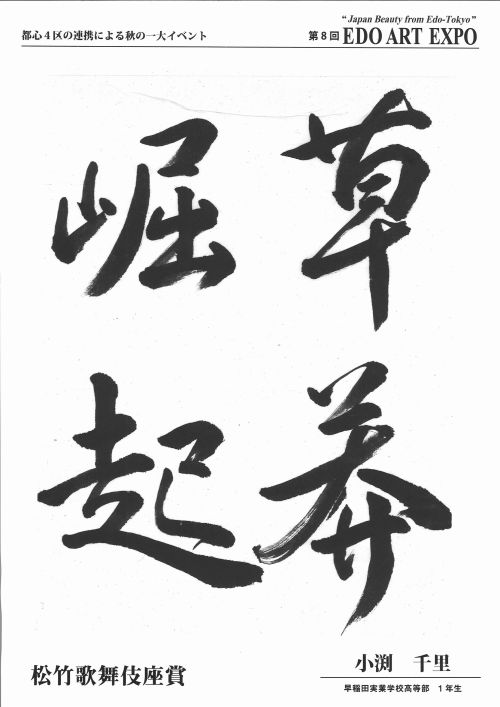 都心4区の連携による秋の一大イベント
"Japan Beauty from Edo-Tokyo"
第8回 EDO ART EXPO
草莽
崛起
松竹歌舞伎座賞
小渕 千里
早稲田実業学校高等部 1年生